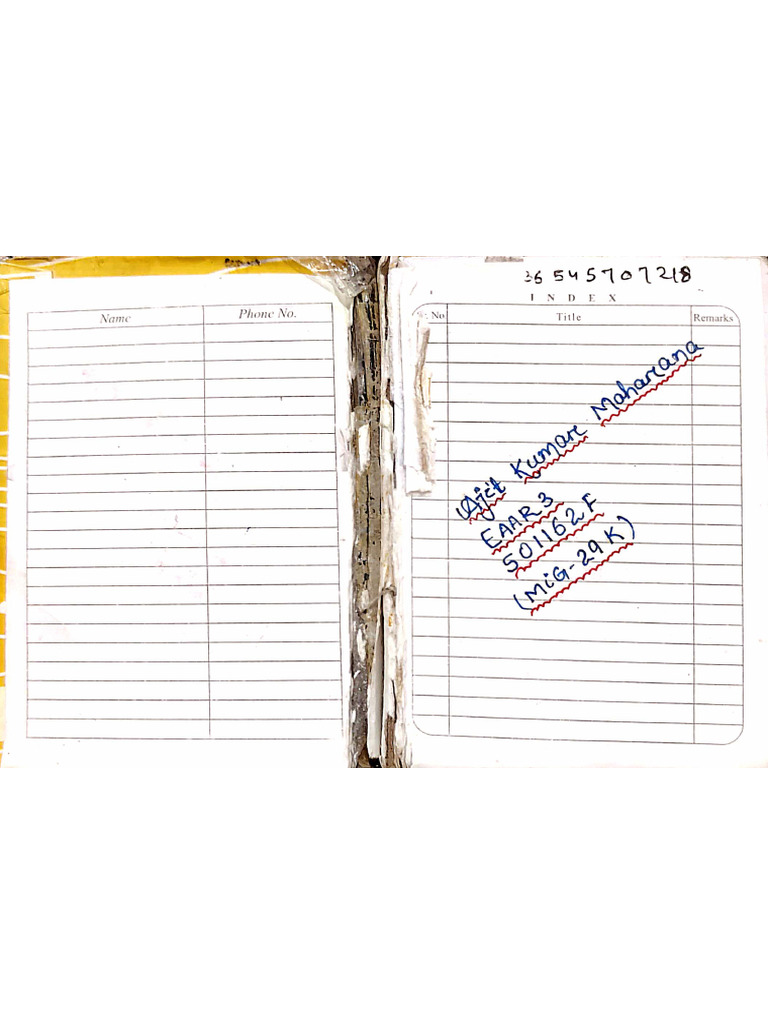 Name Phone No.
36 545707218
INDEX
No Title Remarks
Ajit Kumar Maharana
EAAR3
501162F
(MiG-29K)